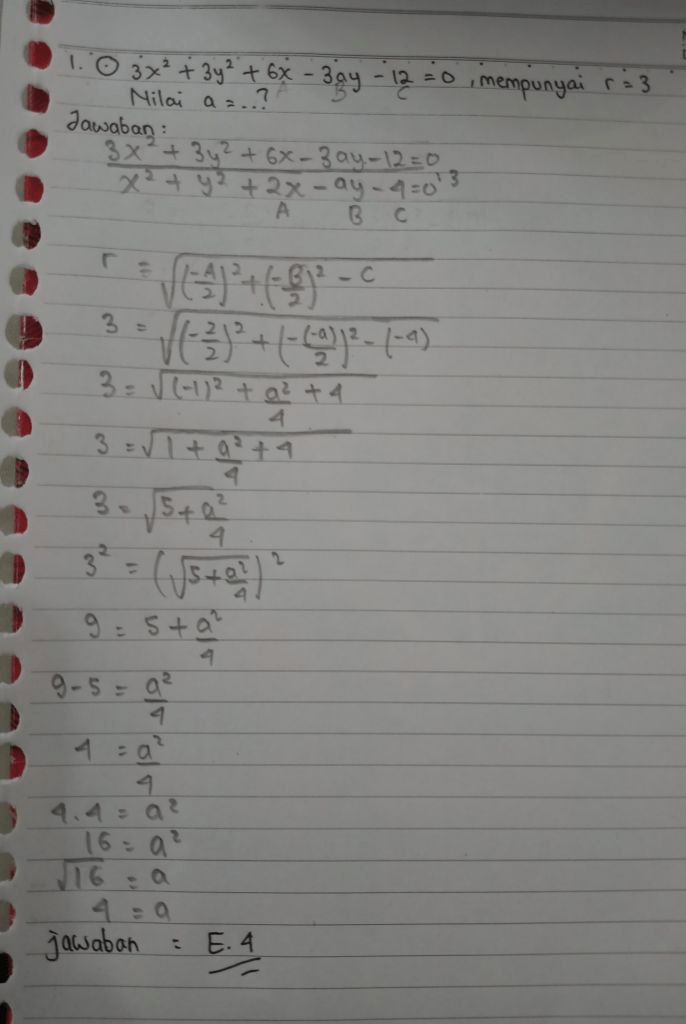 1. ⊙ 3x² + 3y² + 6x − 3ay − 12 = 0 , mempunyai r = 3
A B C
Nilai a = ...?
Jawaban :
3x² + 3y² + 6x − 3ay − 12 = 0
x² + y² + 2x − ay − 4 = 0 : 3
A B C
r = √((-A/2)² + (-B/2)² − C
3 = √((-2/2)² + (-(-a)/2)² − (-4)
3 = √((-1)² + a²/4 + 4
3 = √(1 + a²/4 + 4
3 = √(5 + a²/4
3² = (√(5 + a²/4))²
9 = 5 + a²/4
9 − 5 = a²/4
4 = a²/4
4 . 4 = a²
16 = a²
√16 = a
4 = a
jawaban = E. 4